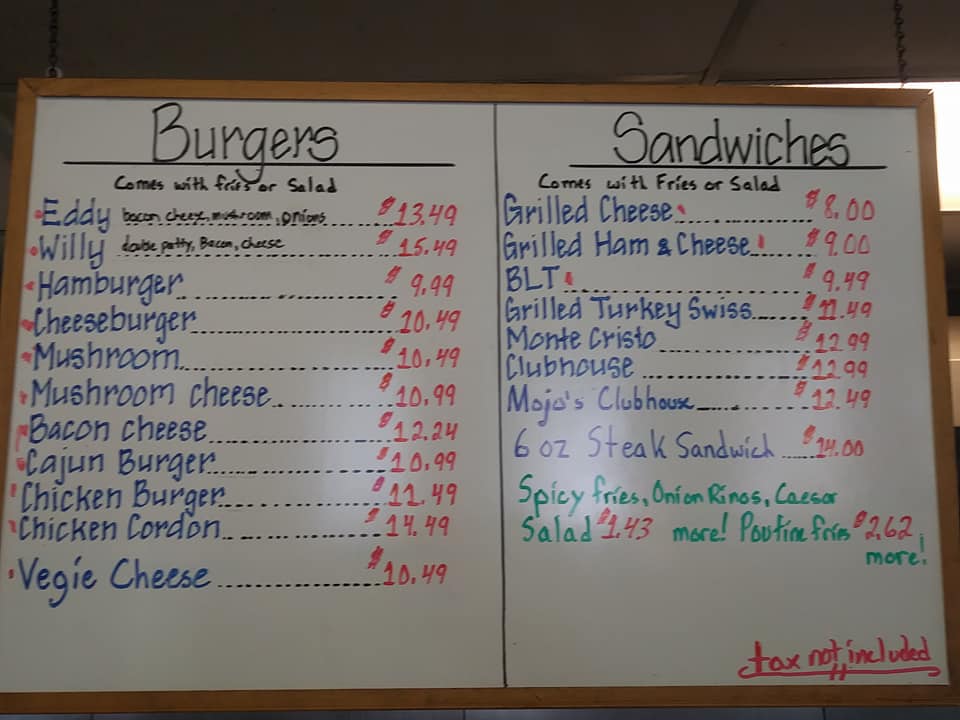 Burgers
Comes with fries or Salad
Eddy bacon cheese, mushroom, onions $13.49
Willy double patty, Bacon, cheese $15.49
Hamburger $9.99
Cheeseburger $10.49
Mushroom $10.49
Mushroom cheese $10.99
Bacon cheese $12.24
Cajun Burger $10.99
Chicken Burger $11.49
Chicken Cordon $14.49
Vegie Cheese $10.49
Sandwiches
Comes with Fries or Salad
Grilled Cheese $8.00
Grilled Ham & Cheese $9.00
BLT $9.49
Grilled Turkey Swiss $11.49
Monte Cristo $12.99
Clubhouse $12.99
Mojo's Clubhouse $12.49
6 oz Steak Sandwich $14.00
Spicy fries, Onion Rings, Caesar
Salad $1.43 more! Poutine fries $2.62
more!
tax not included